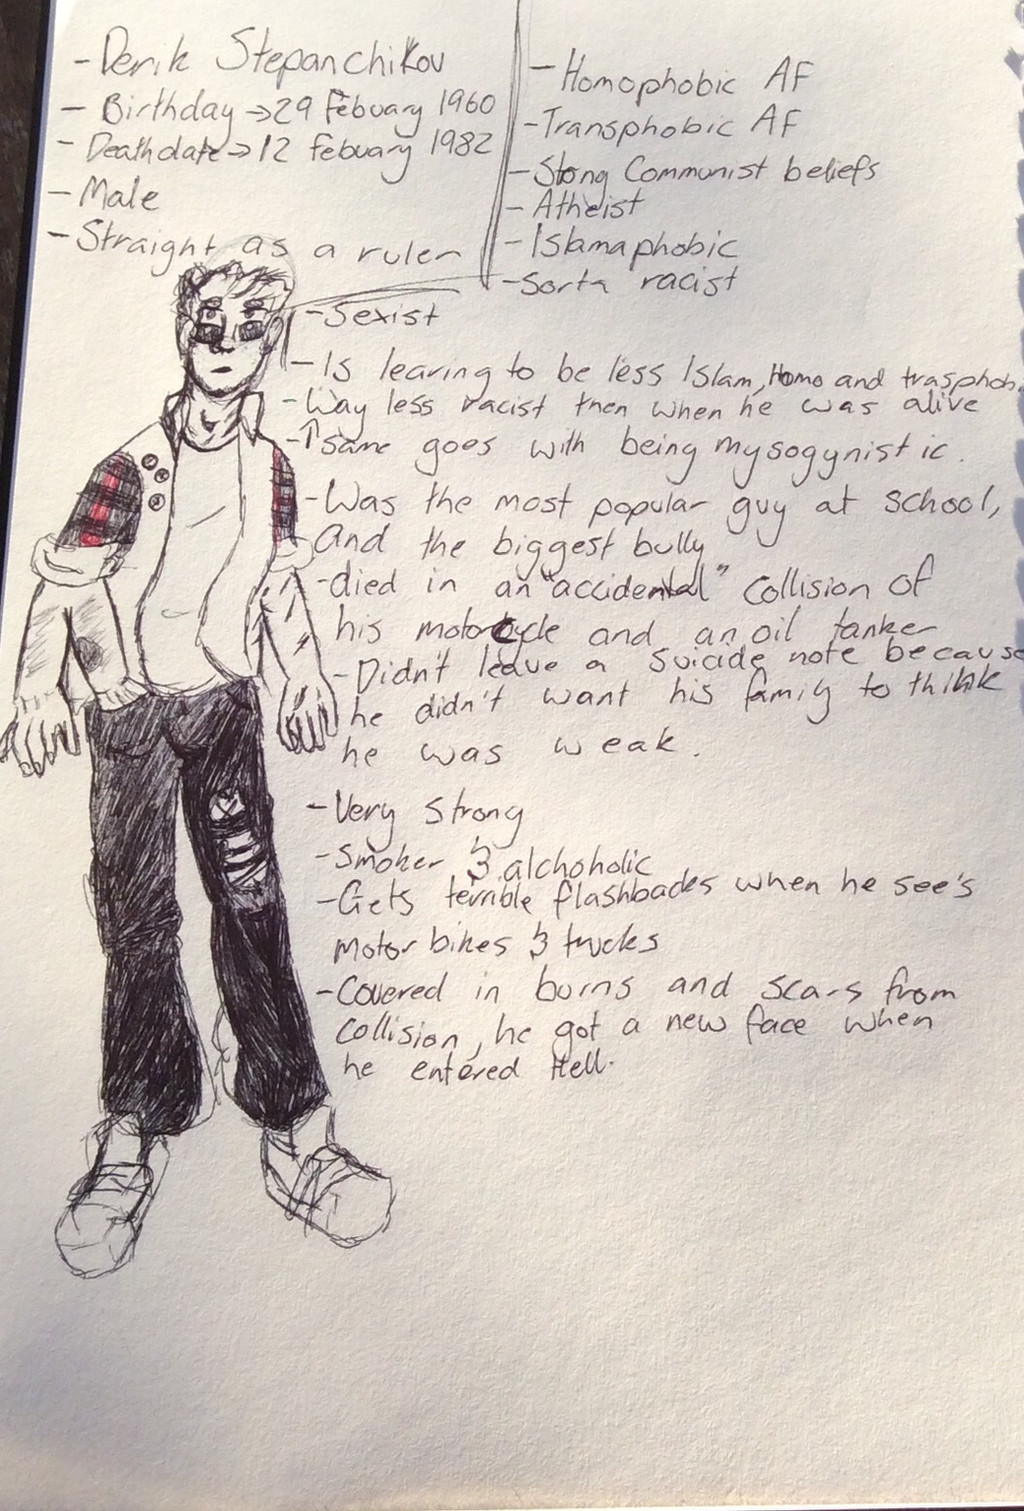 - Derik Stepanchikov
- Birthday → 29 Febuary 1960
- Deathdate → 12 febuary 1982
- Male
- Straight as a ruler
- Homophobic AF
- Transphobic AF
- Stong Communist beliefs
- Atheist
- Islamaphobic
- Sorta racist
- Sexist
- Is learing to be less Islam, Homo and trasphob
- Way less racist then when he was alive
- ↑ same goes with being mysogynistic.
- Was the most popular guy at school,
and the biggest bully
- died in an "accidental" collision of
his motorcycle and an oil tanker
- Didn't leave a suicide note because
he didn't want his family to think
he was weak.
- Very strong
- smoker & alchoholic
- Gets terrible flashbacks when he see's
motor bikes & trucks
- Covered in burns and scars from
collision, he got a new face when
he entered Hell.